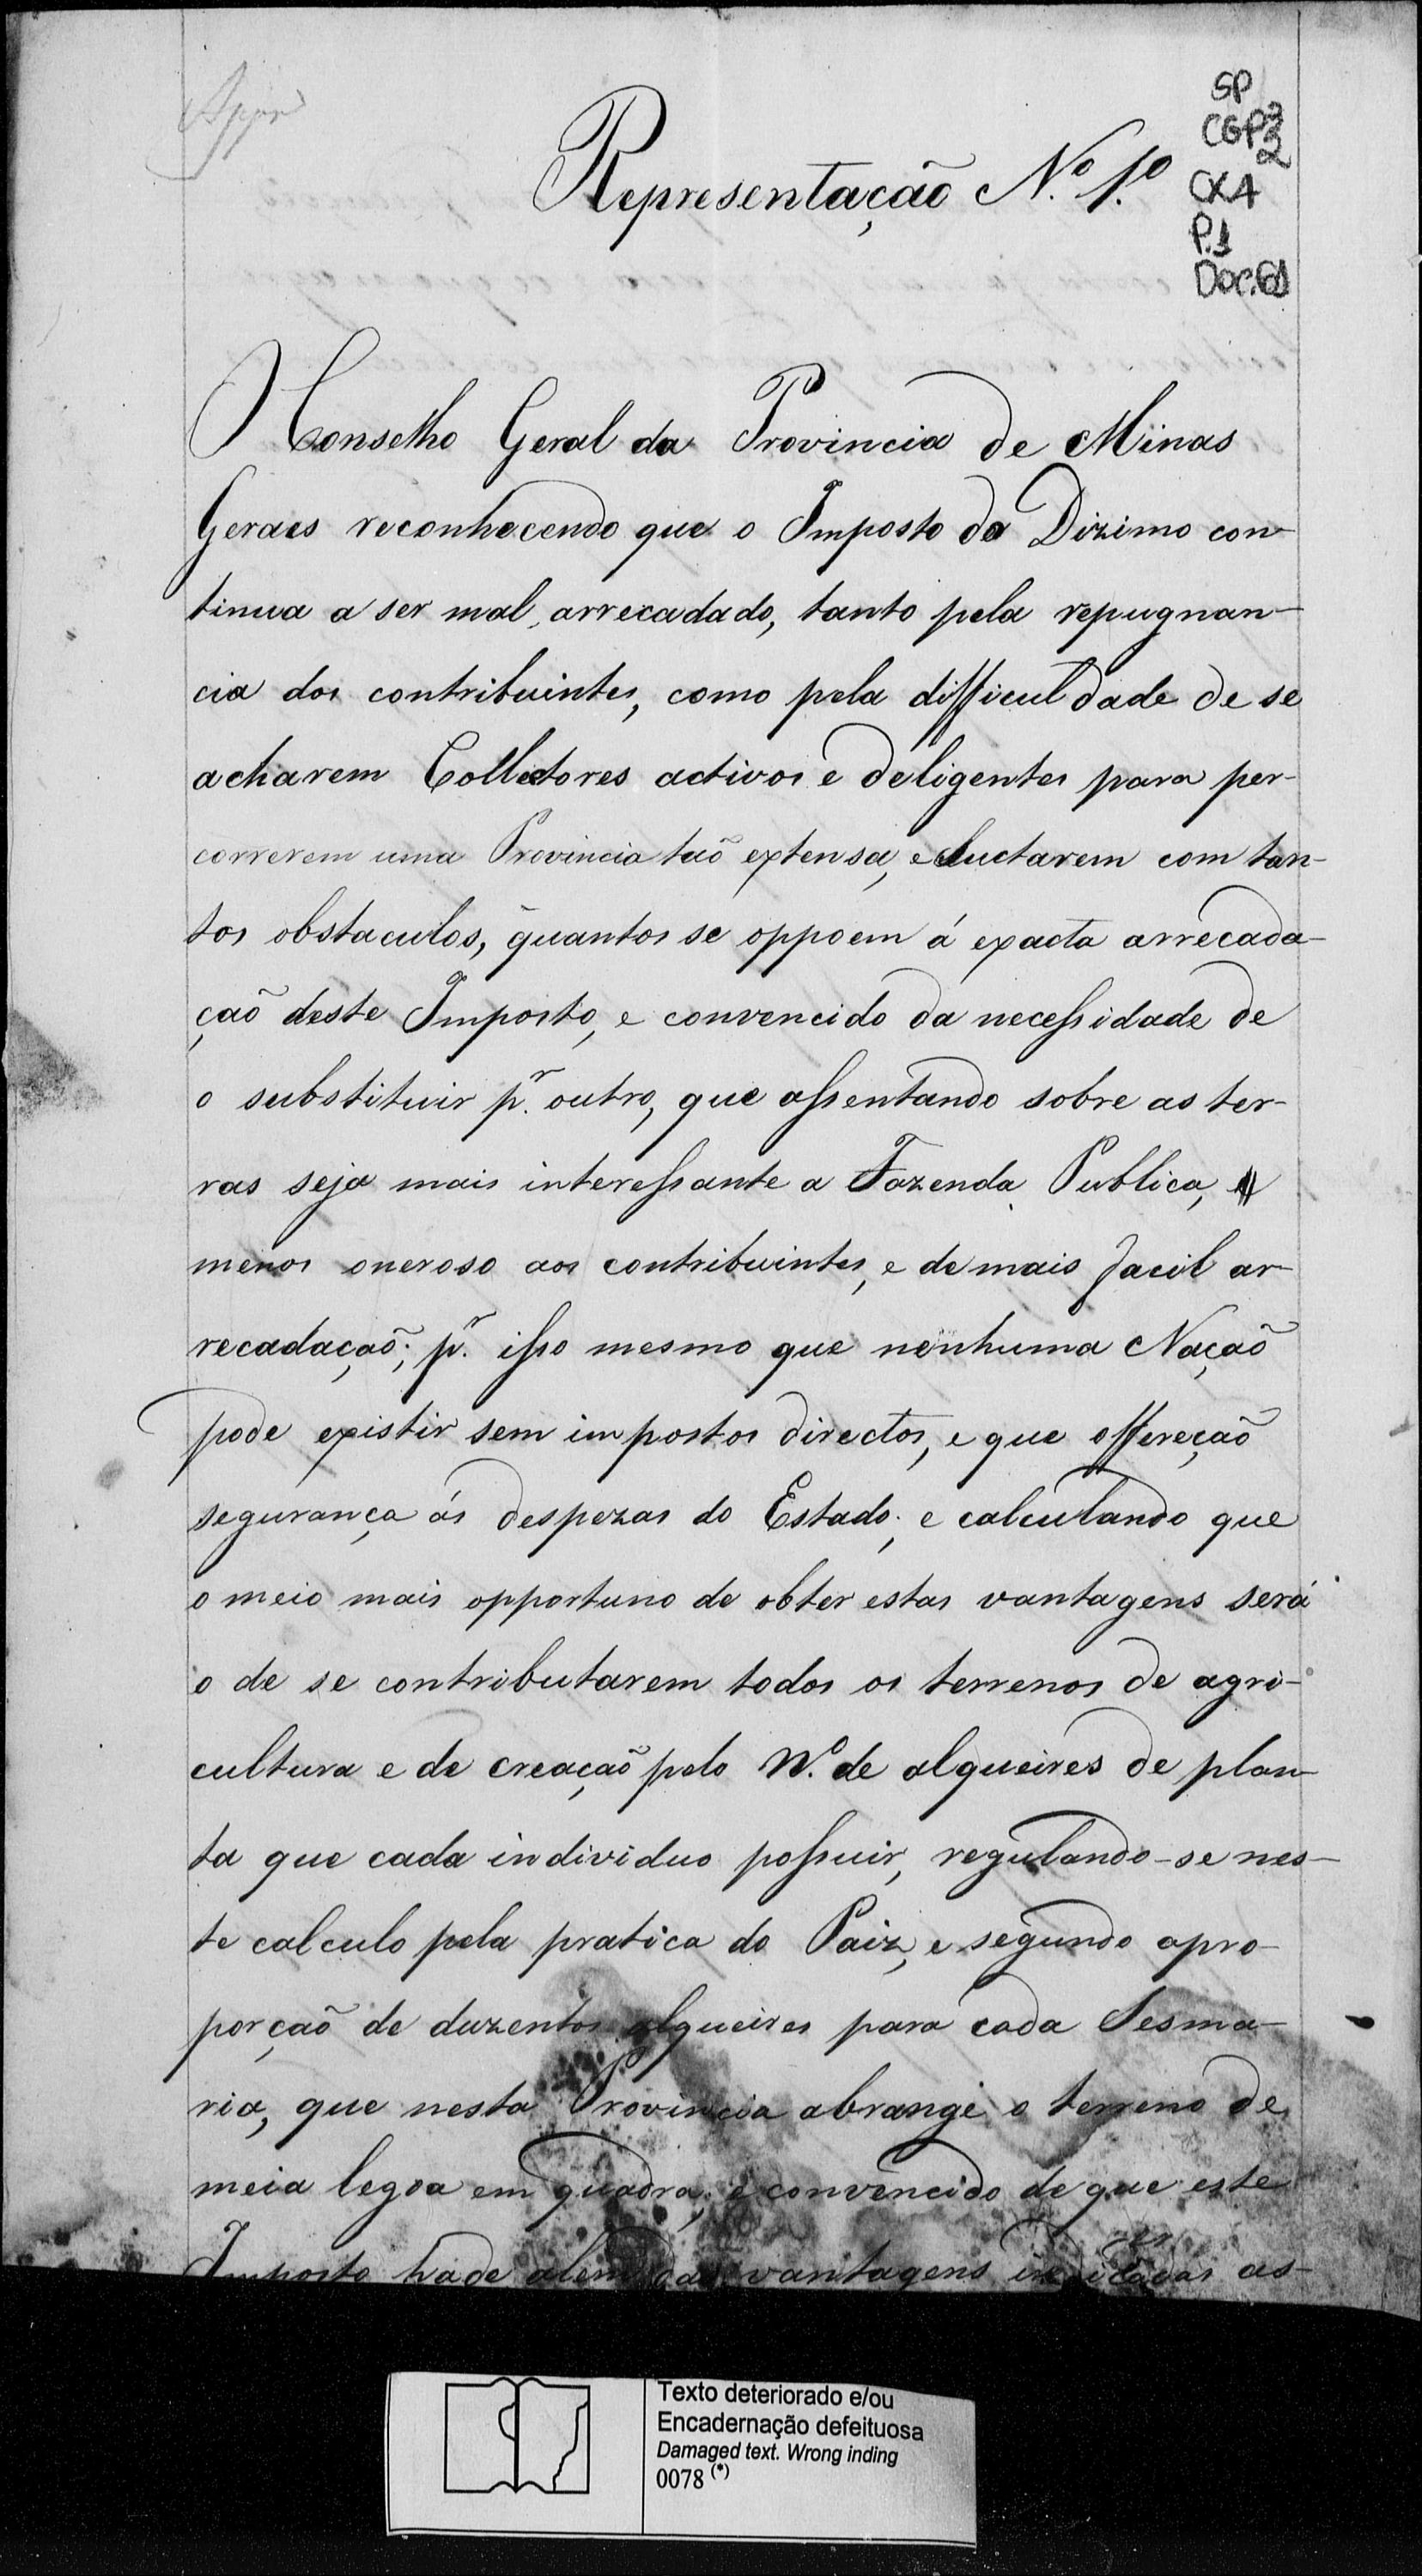 Appr
SP
CGP 3
2
CX 4
P. 1
Doc. 61
Representação N.º 1.º
O Conselho Geral da Provincia de Minas
Geraes reconhecendo que o Imposto do Dizimo con-
tinua a ser mal arrecadado, tanto pela repugnan-
cia dos contribuintes, como pela difficuldade de se
acharem Collectores activos e deligentes para per-
correrem uma Provincia taõ extensa, e luctarem com tan-
tos obstaculos, quantos se oppoem á exacta arrecada-
çaõ deste Imposto, e convencido da necessidade de
o substituir p.r outro, que assentando sobre as ter-
ras seja mais interessante a Fazenda Publica,
menos oneroso aos contribuintes, e de mais facil ar-
recadaçaõ; p.r isso mesmo que nenhuma Naçaõ
pode existir sem impostos directos, e que offereçaõ
segurança ás despezas do Estado; e calculando que
o meio mais opportuno de obter estas vantagens será
o de se contributarem todos os terrenos de agri-
cultura e de creaçaõ pelo N.º de alqueires de plan-
ta que cada individuo possuir, regulando-se nes-
te calculo pela pratica do Paiz, e segundo apro-
porçaõ de duzentos alqueires para cada Sesma-
ria, que nesta Provincia abrange o terreno de
meia legoa em quadra; e convencido de que este
Imposto hade alem das vantagens indicadas as-
Texto deteriorado e/ou
Encadernação defeituosa
Damaged text. Wrong inding
0078 (*)